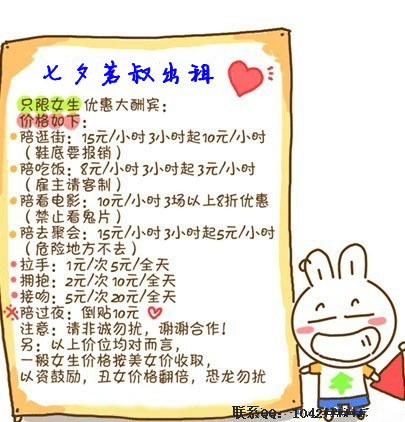 七夕茗叔出租
只限女生优惠大酬宾：
价格如下：
陪逛街：15元/小时3小时起10元/小时
（鞋底要报销）
陪吃饭：8元/小时3小时起3元/小时
（雇主请客制）
陪看电影：10元/小时3场以上8折优惠
（禁止看鬼片）
陪去聚会：15元/小时3小时起5元/小时
（危险地方不去）
拉手：1元/次5元/全天
拥抱：2元/次10元/全天
接吻：5元/次20元/全天
※陪过夜：倒贴10元
注意：请非诚勿扰，谢谢合作！
另：以上价位均对而言，
一般女生价格按美女价收取，
以资鼓励，丑女价格翻倍，恐龙勿扰
联系QQ：1042